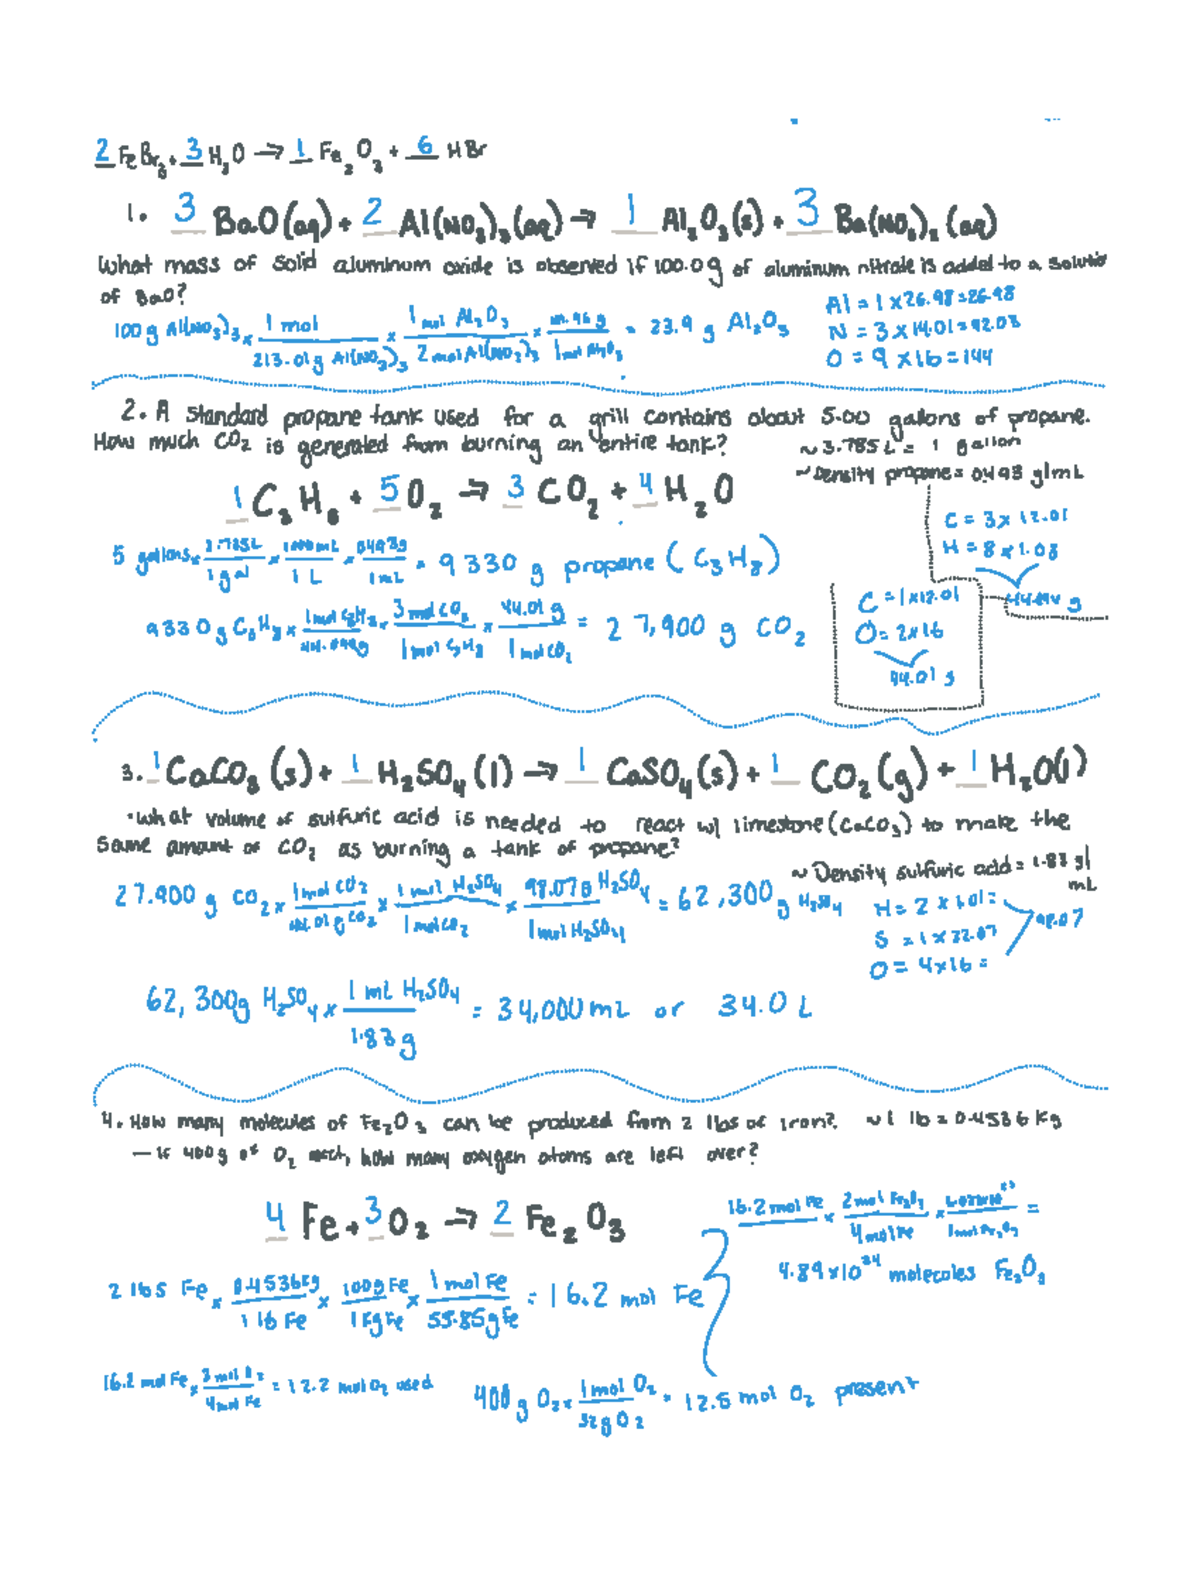 2 FeBr3 + 3 H2O → 1 Fe2O3 + 6 HBr
1. 3 BaO(aq) + 2 Al(NO3)3(aq) → 1 Al2O3(s) + 3 Ba(NO3)2(aq)
What mass of solid aluminum oxide is observed if 100.0g of aluminum nitrate is added to a solution
of BaO?
100 g Al(NO3)3 × 1 mol / 213.01g Al(NO3)3 × 1 mol Al2O3 / 2 mol Al(NO3)3 × 101.96 g / 1 mol Al2O3 = 23.9 g Al2O3
Al = 1 × 26.98 = 26.98
N = 3 × 14.01 = 42.03
O = 9 × 16 = 144
2. A standard propane tank used for a grill contains about 5.00 gallons of propane.
How much CO2 is generated from burning an entire tank?
~ 3.785 L = 1 gallon
~ Density propane = 0.493 g/mL
1 C3H8 + 5 O2 → 3 CO2 + 4 H2O
C = 3 × 12.01
H = 8 × 1.08
44.094 g
5 gallons × 3.785L / 1 gal × 1000 mL / 1 L × 0.493g / 1 mL = 9330 g propane (C3H8)
C = 1×12.01
O = 2×16
44.01 g
9330 g C3H8 × 1 mol C3H8 / 44.094g × 3 mol CO2 / 1 mol C3H8 × 44.01 g / 1 mol CO2 = 27,900 g CO2
3. 1 CaCO3 (s) + 1 H2SO4 (l) → 1 CaSO4(s) + 1 CO2(g) + 1 H2O(l)
·What volume of sulfuric acid is needed to react w/ limestone (CaCO3) to make the
same amount of CO2 as burning a tank of propane?
~ Density sulfuric acid = 1.83 g/mL
27.900 g CO2 × 1 mol CO2 / 44.01 g CO2 × 1 mol H2SO4 / 1 mol CO2 × 98.07g H2SO4 / 1 mol H2SO4 = 62,300 g H2SO4
H = 2 × 1.01 =
S = 1 × 32.07
O = 4×16 =
98.07
62,300g H2SO4 × 1 mL H2SO4 / 1.83 g = 34,000 mL or 34.0 L
4. How many molecules of Fe2O3 can be produced from 2 lbs of iron? ~ 1 lb = 0.4536 Kg
— If 400g of O2 react, how many oxygen atoms are left over?
4 Fe + 3 O2 → 2 Fe2O3
16.2 mol Fe × 2 mol Fe2O3 / 4 mol Fe × / 1 mol Fe2O3 =
4.89×10^24 molecules Fe2O3
2 lbs Fe × 0.4536Kg / 1 lb Fe × 100g Fe / 1 Kg Fe × 1 mol Fe / 55.85g Fe = 16.2 mol Fe
16.2 mol Fe × 3 mol O2 / 4 mol Fe = 12.2 mol O2 used
400 g O2 × 1 mol O2 / 32g O2 = 12.5 mol O2 present